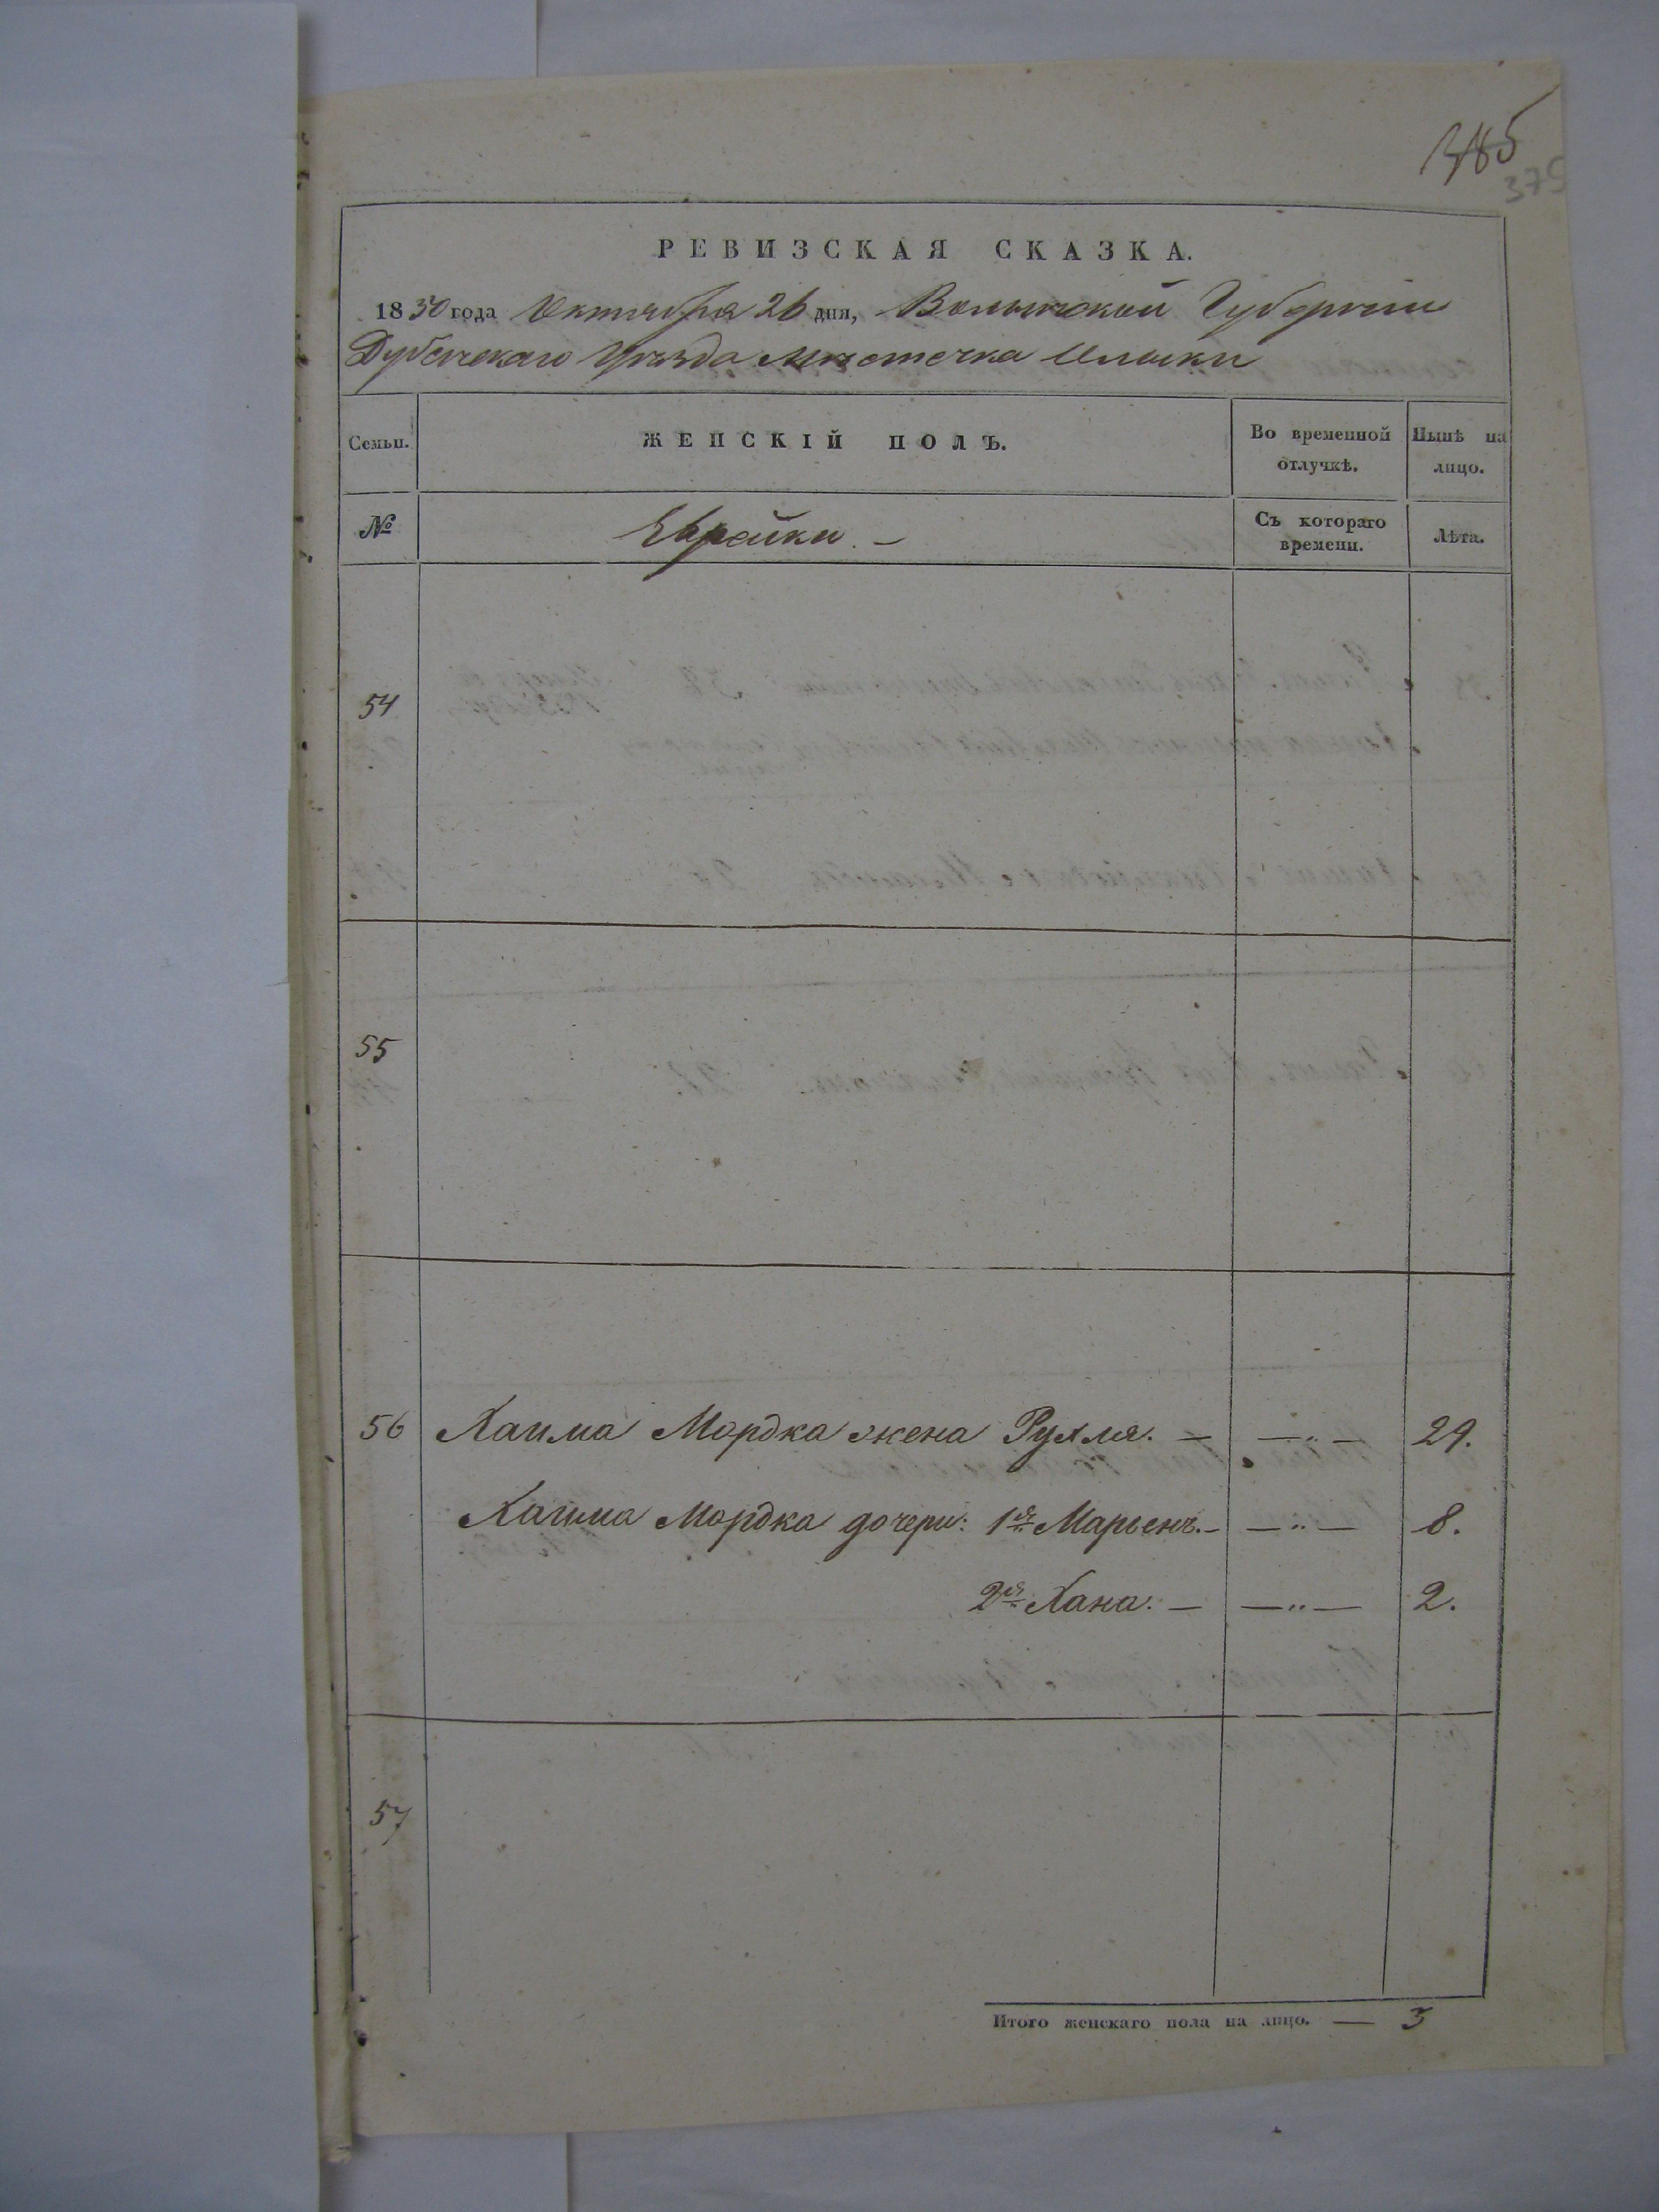 385
375
РЕВИЗСКАЯ СКАЗКА.
1850 года Октября 26 дня, Волынской Губернии
Дубенскаго Уѣзда Мѣстечка Олыки
Семьи.
ЖЕНСКІЙ ПОЛЪ.
Во временной отлучкѣ.
Нынѣ на лицо.
№
Еврейки. —
Съ котораго времени.
Лѣта.
54
55
56 Хаима Мордка жена Рухля. — —"— 29.
Хаима Мордка дочери: 1я Марьемъ. — —"— 8.
2я Хана. — —"— 2.
57
Итого женскаго пола на лицо. — 3